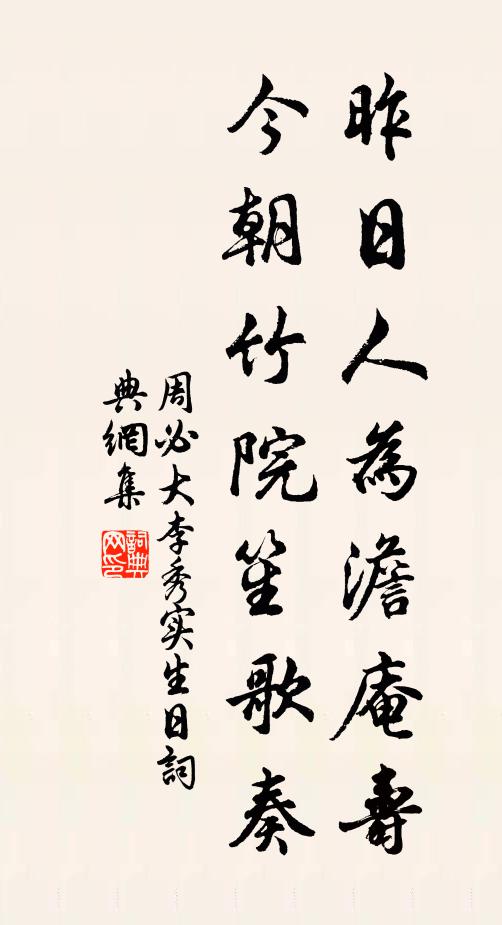 昨日人為澹庵壽
今朝竹院笙歌奏
周必大李秀实生日詞
典網集
詞典网印